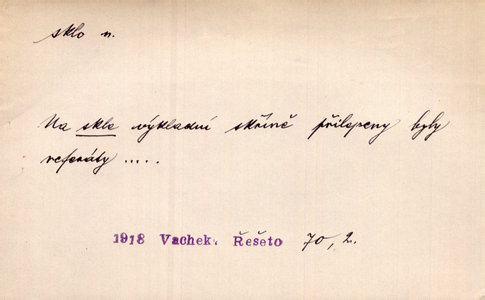 sklo n.
Na skle výkladní skříně přilepeny byly
referáty .....
1918 Vachek. Řešeto 70, 2.